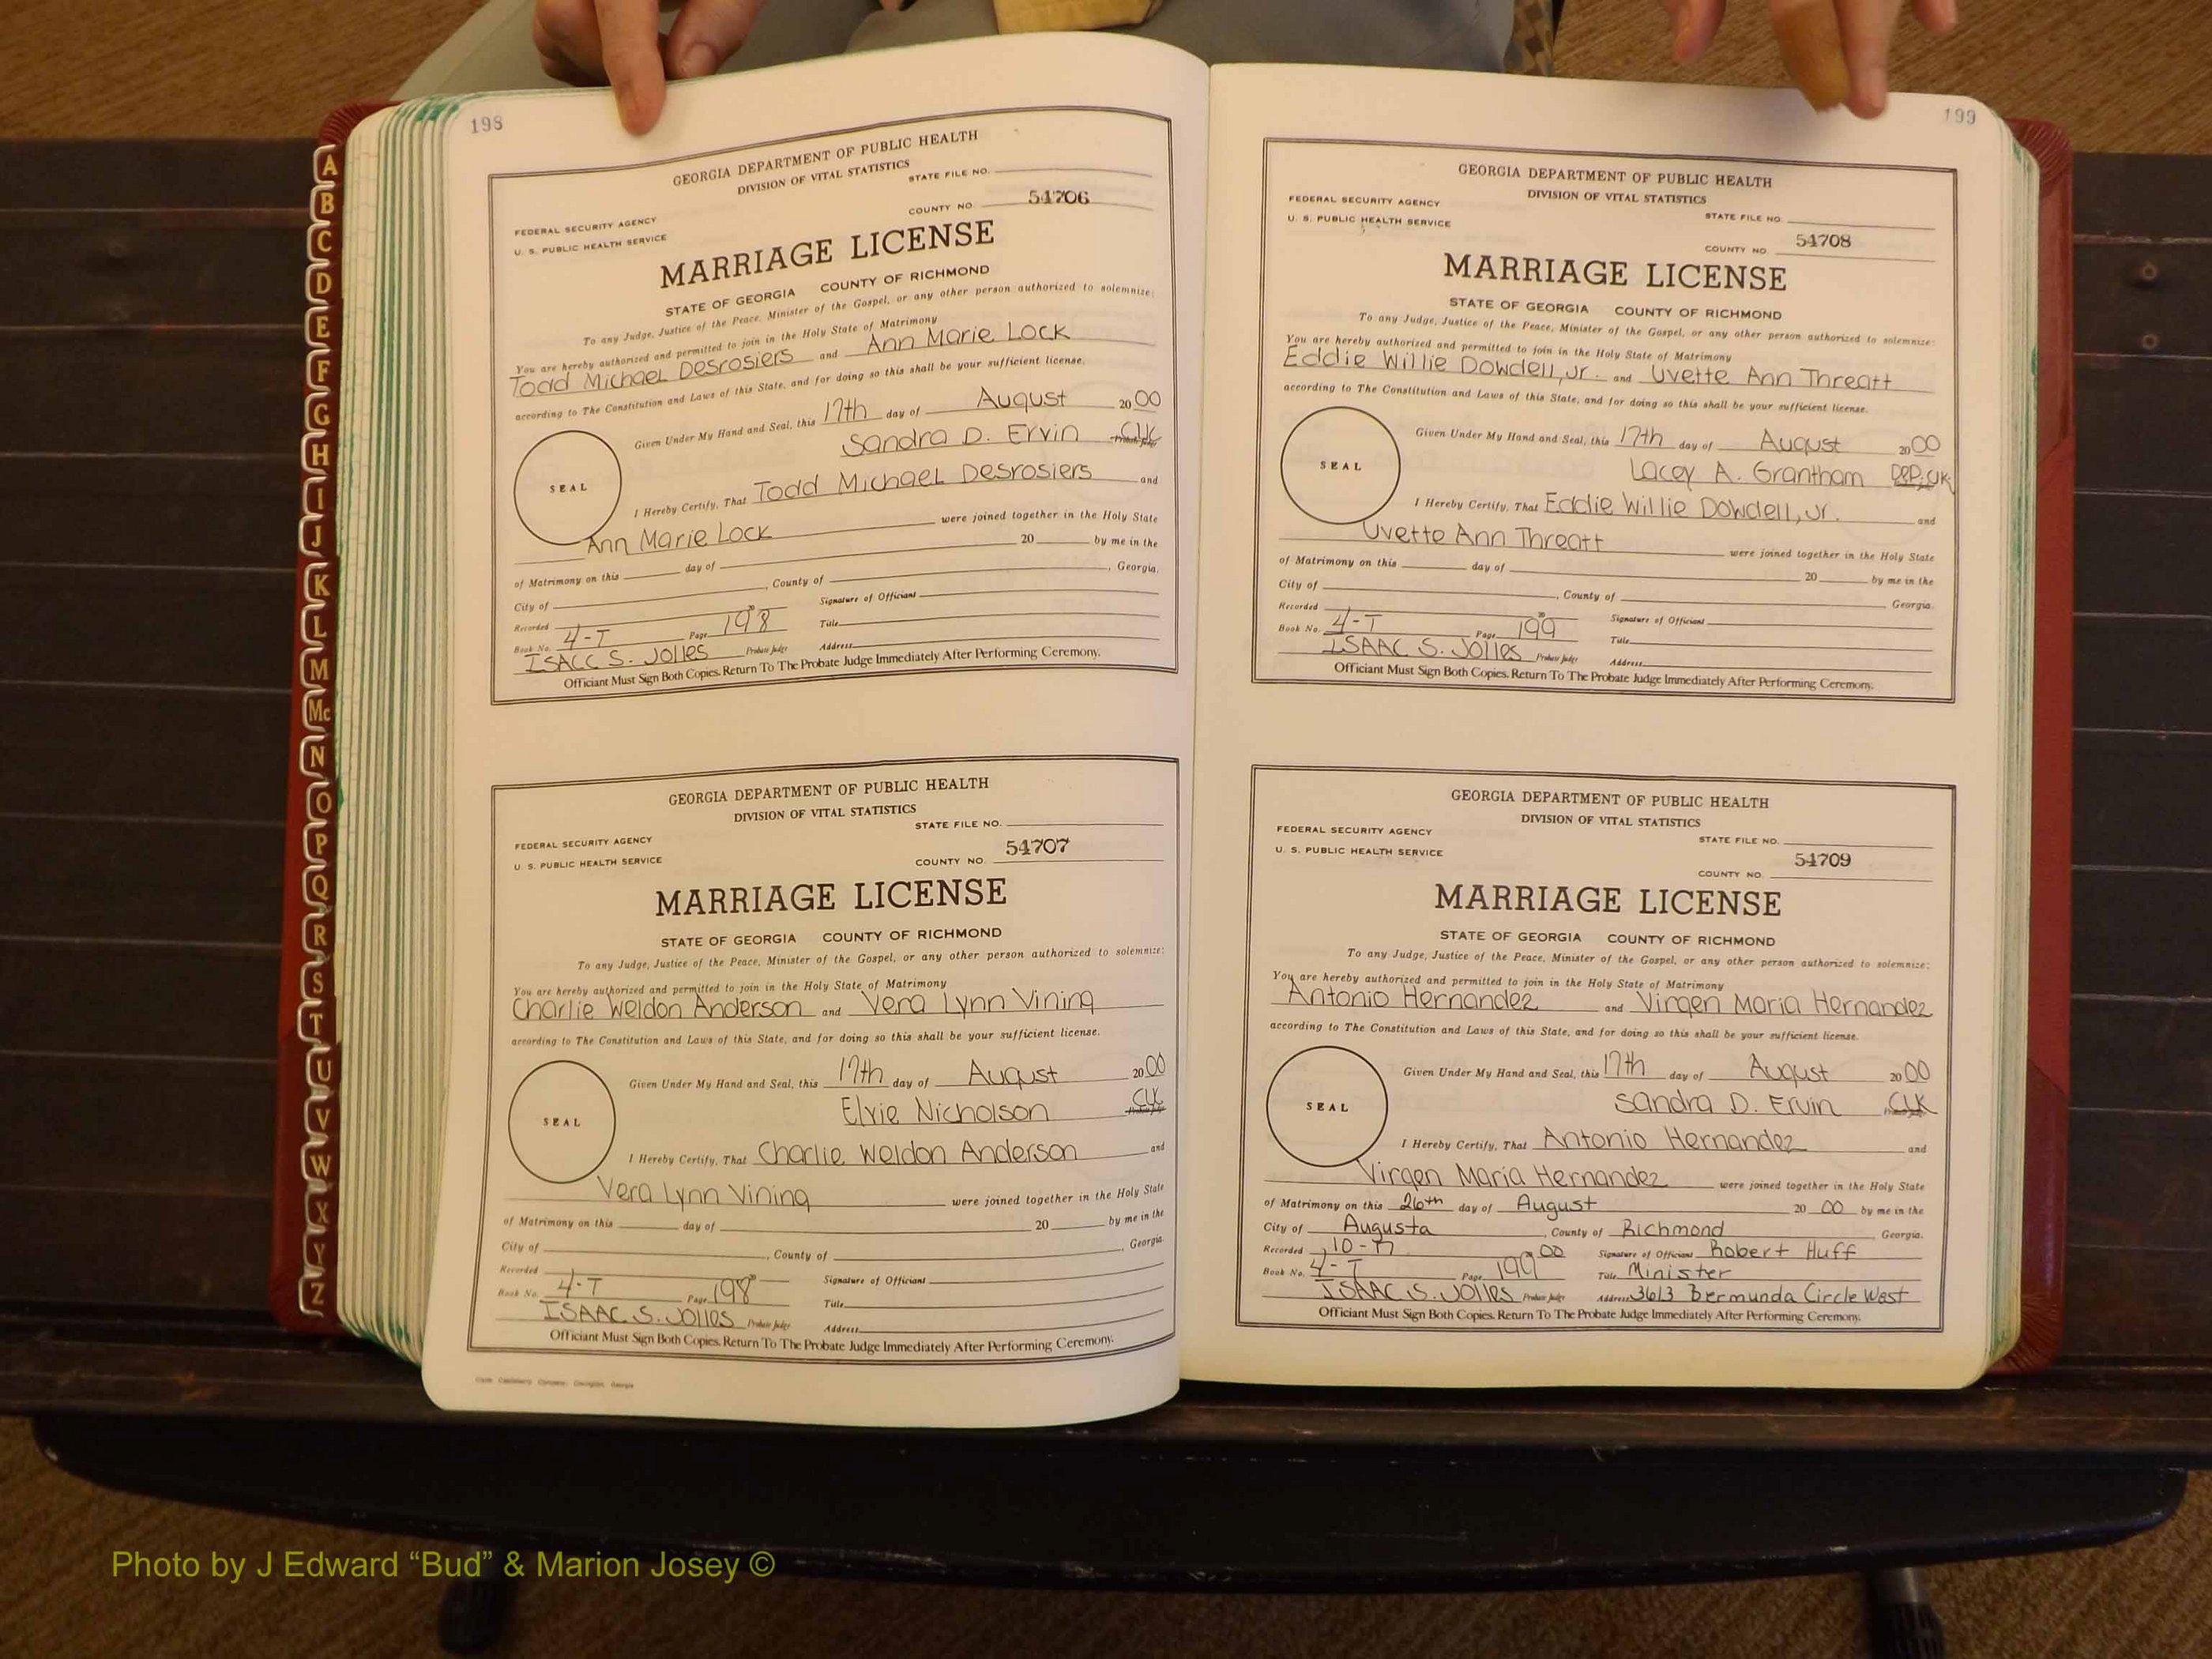 198
GEORGIA DEPARTMENT OF PUBLIC HEALTH
DIVISION OF VITAL STATISTICS
STATE FILE NO.
FEDERAL SECURITY AGENCY
COUNTY NO 54706
U. S. PUBLIC HEALTH SERVICE
MARRIAGE LICENSE
STATE OF GEORGIA COUNTY OF RICHMOND
To any Judge, Justice of the Peace, Minister of the Gospel, or any other person authorized to solemnize:
You are hereby authorized and permitted to join in the Holy State of Matrimony
Todd Michael Desrosiers and Ann Marie Lock
according to The Constitution and Laws of this State, and for doing so this shall be your sufficient license.
Given Under My Hand and Seal, this 17th day of August 2000
Sandra D. Ervin CLK
SEAL
I Hereby Certify, That Todd Michael Desrosiers and
Ann Marie Lock were joined together in the Holy State
of Matrimony on this day of 20 by me in the
City of , County of , Georgia.
Recorded 20 Signature of Officiant
Book No. 4-T Page 198 Title
ISACC S. Jolles Probate Judge Address
Officiant Must Sign Both Copies. Return To The Probate Judge Immediately After Performing Ceremony.
GEORGIA DEPARTMENT OF PUBLIC HEALTH
DIVISION OF VITAL STATISTICS
STATE FILE NO.
FEDERAL SECURITY AGENCY
COUNTY NO. 54707
U. S. PUBLIC HEALTH SERVICE
MARRIAGE LICENSE
STATE OF GEORGIA COUNTY OF RICHMOND
To any Judge, Justice of the Peace, Minister of the Gospel, or any other person authorized to solemnize:
You are hereby authorized and permitted to join in the Holy State of Matrimony
Charlie Weldon Anderson and Vera Lynn Vining
according to The Constitution and Laws of this State, and for doing so this shall be your sufficient license.
Given Under My Hand and Seal, this 17th day of August 2000
Elvie Nicholson CLK
SEAL
I Hereby Certify, That Charlie Weldon Anderson and
Vera Lynn Vining were joined together in the Holy State
of Matrimony on this day of 20 by me in the
City of , County of , Georgia.
Recorded 20 Signature of Officiant
Book No. 4-T Page 198 Title
ISAAC S. Jolles Probate Judge Address
Officiant Must Sign Both Copies. Return To The Probate Judge Immediately After Performing Ceremony.
199
GEORGIA DEPARTMENT OF PUBLIC HEALTH
DIVISION OF VITAL STATISTICS
FEDERAL SECURITY AGENCY
STATE FILE NO.
U. S. PUBLIC HEALTH SERVICE
COUNTY NO. 54708
MARRIAGE LICENSE
STATE OF GEORGIA COUNTY OF RICHMOND
To any Judge, Justice of the Peace, Minister of the Gospel, or any other person authorized to solemnize:
You are hereby authorized and permitted to join in the Holy State of Matrimony
Eddie Willie Dowdell, Jr. and Uvette Ann Threatt
according to The Constitution and Laws of this State, and for doing so this shall be your sufficient license.
Given Under My Hand and Seal, this 17th day of August 2000
Lacey A. Grantham Dep. Clk.
SEAL
I Hereby Certify, That Eddie Willie Dowdell, Jr. and
Uvette Ann Threatt were joined together in the Holy State
of Matrimony on this day of 20 by me in the
City of , County of Georgia.
Recorded 20 Signature of Officiant
Book No. 4-T Page 199 Title
ISAAC S. Jolles Probate Judge Address
Officiant Must Sign Both Copies. Return To The Probate Judge Immediately After Performing Ceremony.
GEORGIA DEPARTMENT OF PUBLIC HEALTH
DIVISION OF VITAL STATISTICS
FEDERAL SECURITY AGENCY
STATE FILE NO.
U. S. PUBLIC HEALTH SERVICE
COUNTY NO. 54709
MARRIAGE LICENSE
STATE OF GEORGIA COUNTY OF RICHMOND
To any Judge, Justice of the Peace, Minister of the Gospel, or any other person authorized to solemnize:
You are hereby authorized and permitted to join in the Holy State of Matrimony
Antonio Hernandez and Virgen Maria Hernandez
according to The Constitution and Laws of this State, and for doing so this shall be your sufficient license.
Given Under My Hand and Seal, this 17th day of August 2000
Sandra D. Ervin CLK
SEAL
I Hereby Certify, That Antonio Hernandez and
Virgen Maria Hernandez were joined together in the Holy State
of Matrimony on this 26th day of August 20 00 by me in the
City of Augusta , County of Richmond Georgia.
Recorded 10-17 20 00 Signature of Officiant Robert Huff
Book No. 4-T Page 199 Title Minister
ISAAC S. Jolles Probate Judge Address 3613 Bermunda Circle West
Officiant Must Sign Both Copies. Return To The Probate Judge Immediately After Performing Ceremony.
A
B
C
D
E
F
G
H
I
J
K
L
M
Mc
N
O
P
Q
R
S
T
U
V
W
X
Y
Z
Photo by J Edward “Bud” & Marion Josey ©